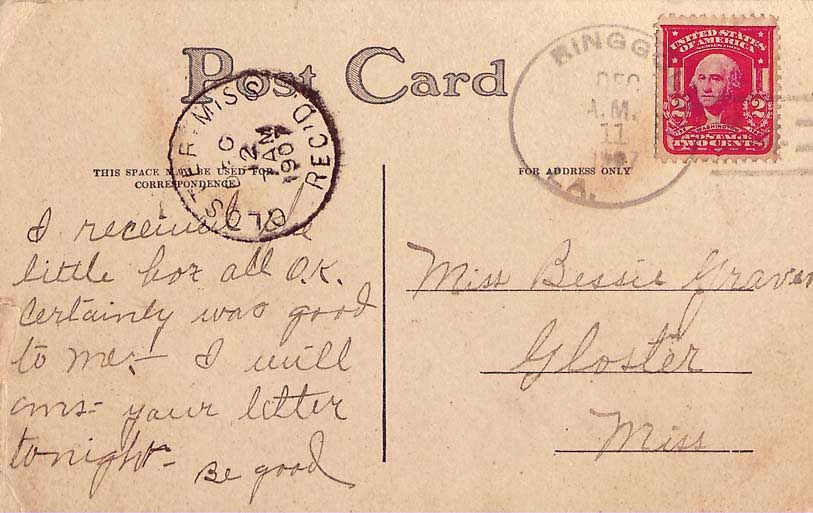 Post Card
THIS SPACE MAY BE USED FOR
CORRESPONDENCE
FOR ADDRESS ONLY
GLOSTER MISS.
DEC
12
7AM
1907
REC'D.
RINGG
DEC
A.M.
11
1907
LA.
UNITED STATES
OF AMERICA
SERIES 1902
2 2
WASHINGTON
POSTAGE
TWO CENTS
I received the
little box all O.K.
Certainly was good
to me:- I will
ans- your letter
tonight-
Be good
Miss Bessie Graves
Gloster
Miss